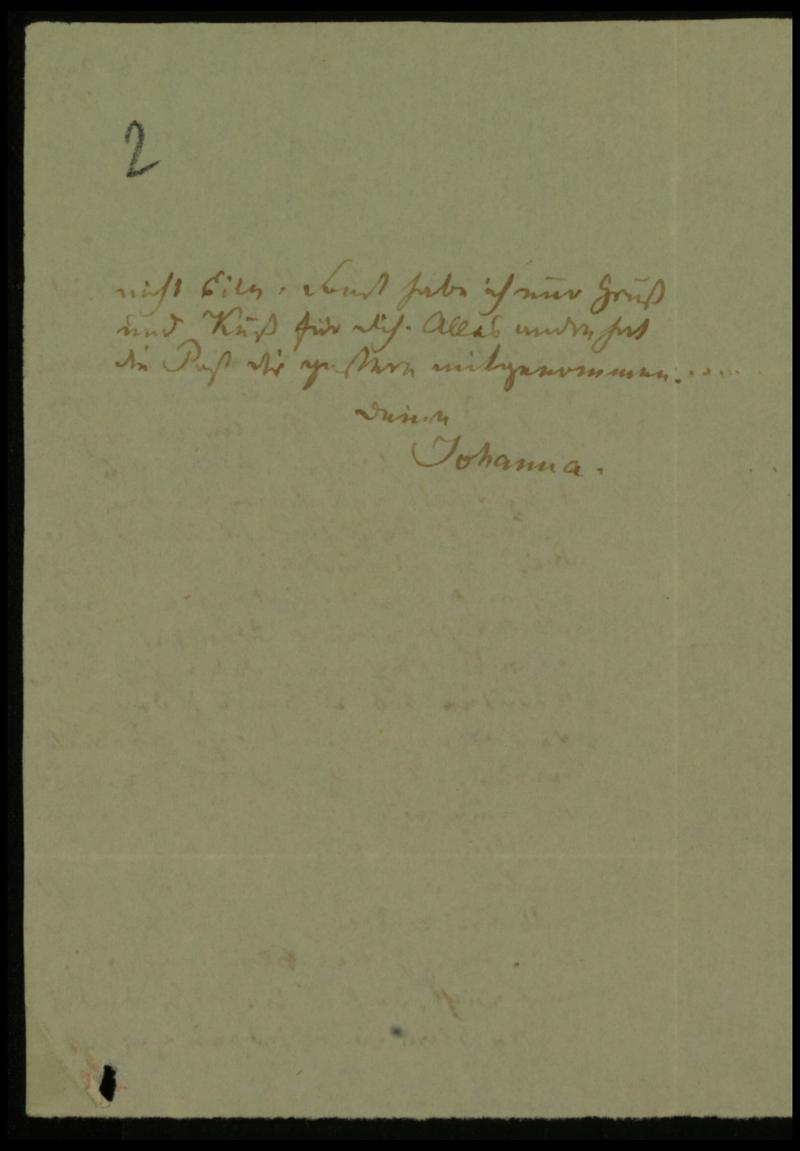 2
nicht Eile. Sonst habe ich nur Gruß
und Kuß für dich. Alles andre hat
die Post dir gestern mitgenommen.....
Deine
Johanna.